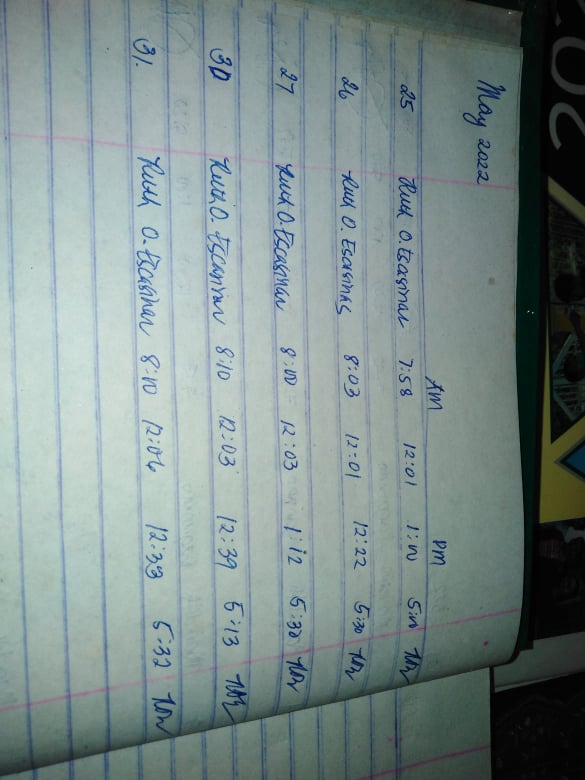 May 2022
AM PM
25 Ruth O. Escasinas 7:58 12:01 1:10 5:10
26 Ruth O. Escasinas 8:03 12:01 12:22 5:30
27 Ruth O. Escasinas 8:10 12:03 1:12 5:30
30 Ruth O. Escasinas 8:10 12:03 12:39 5:13
31. Ruth O. Escasinas 8:10 12:06 12:33 5:32
20